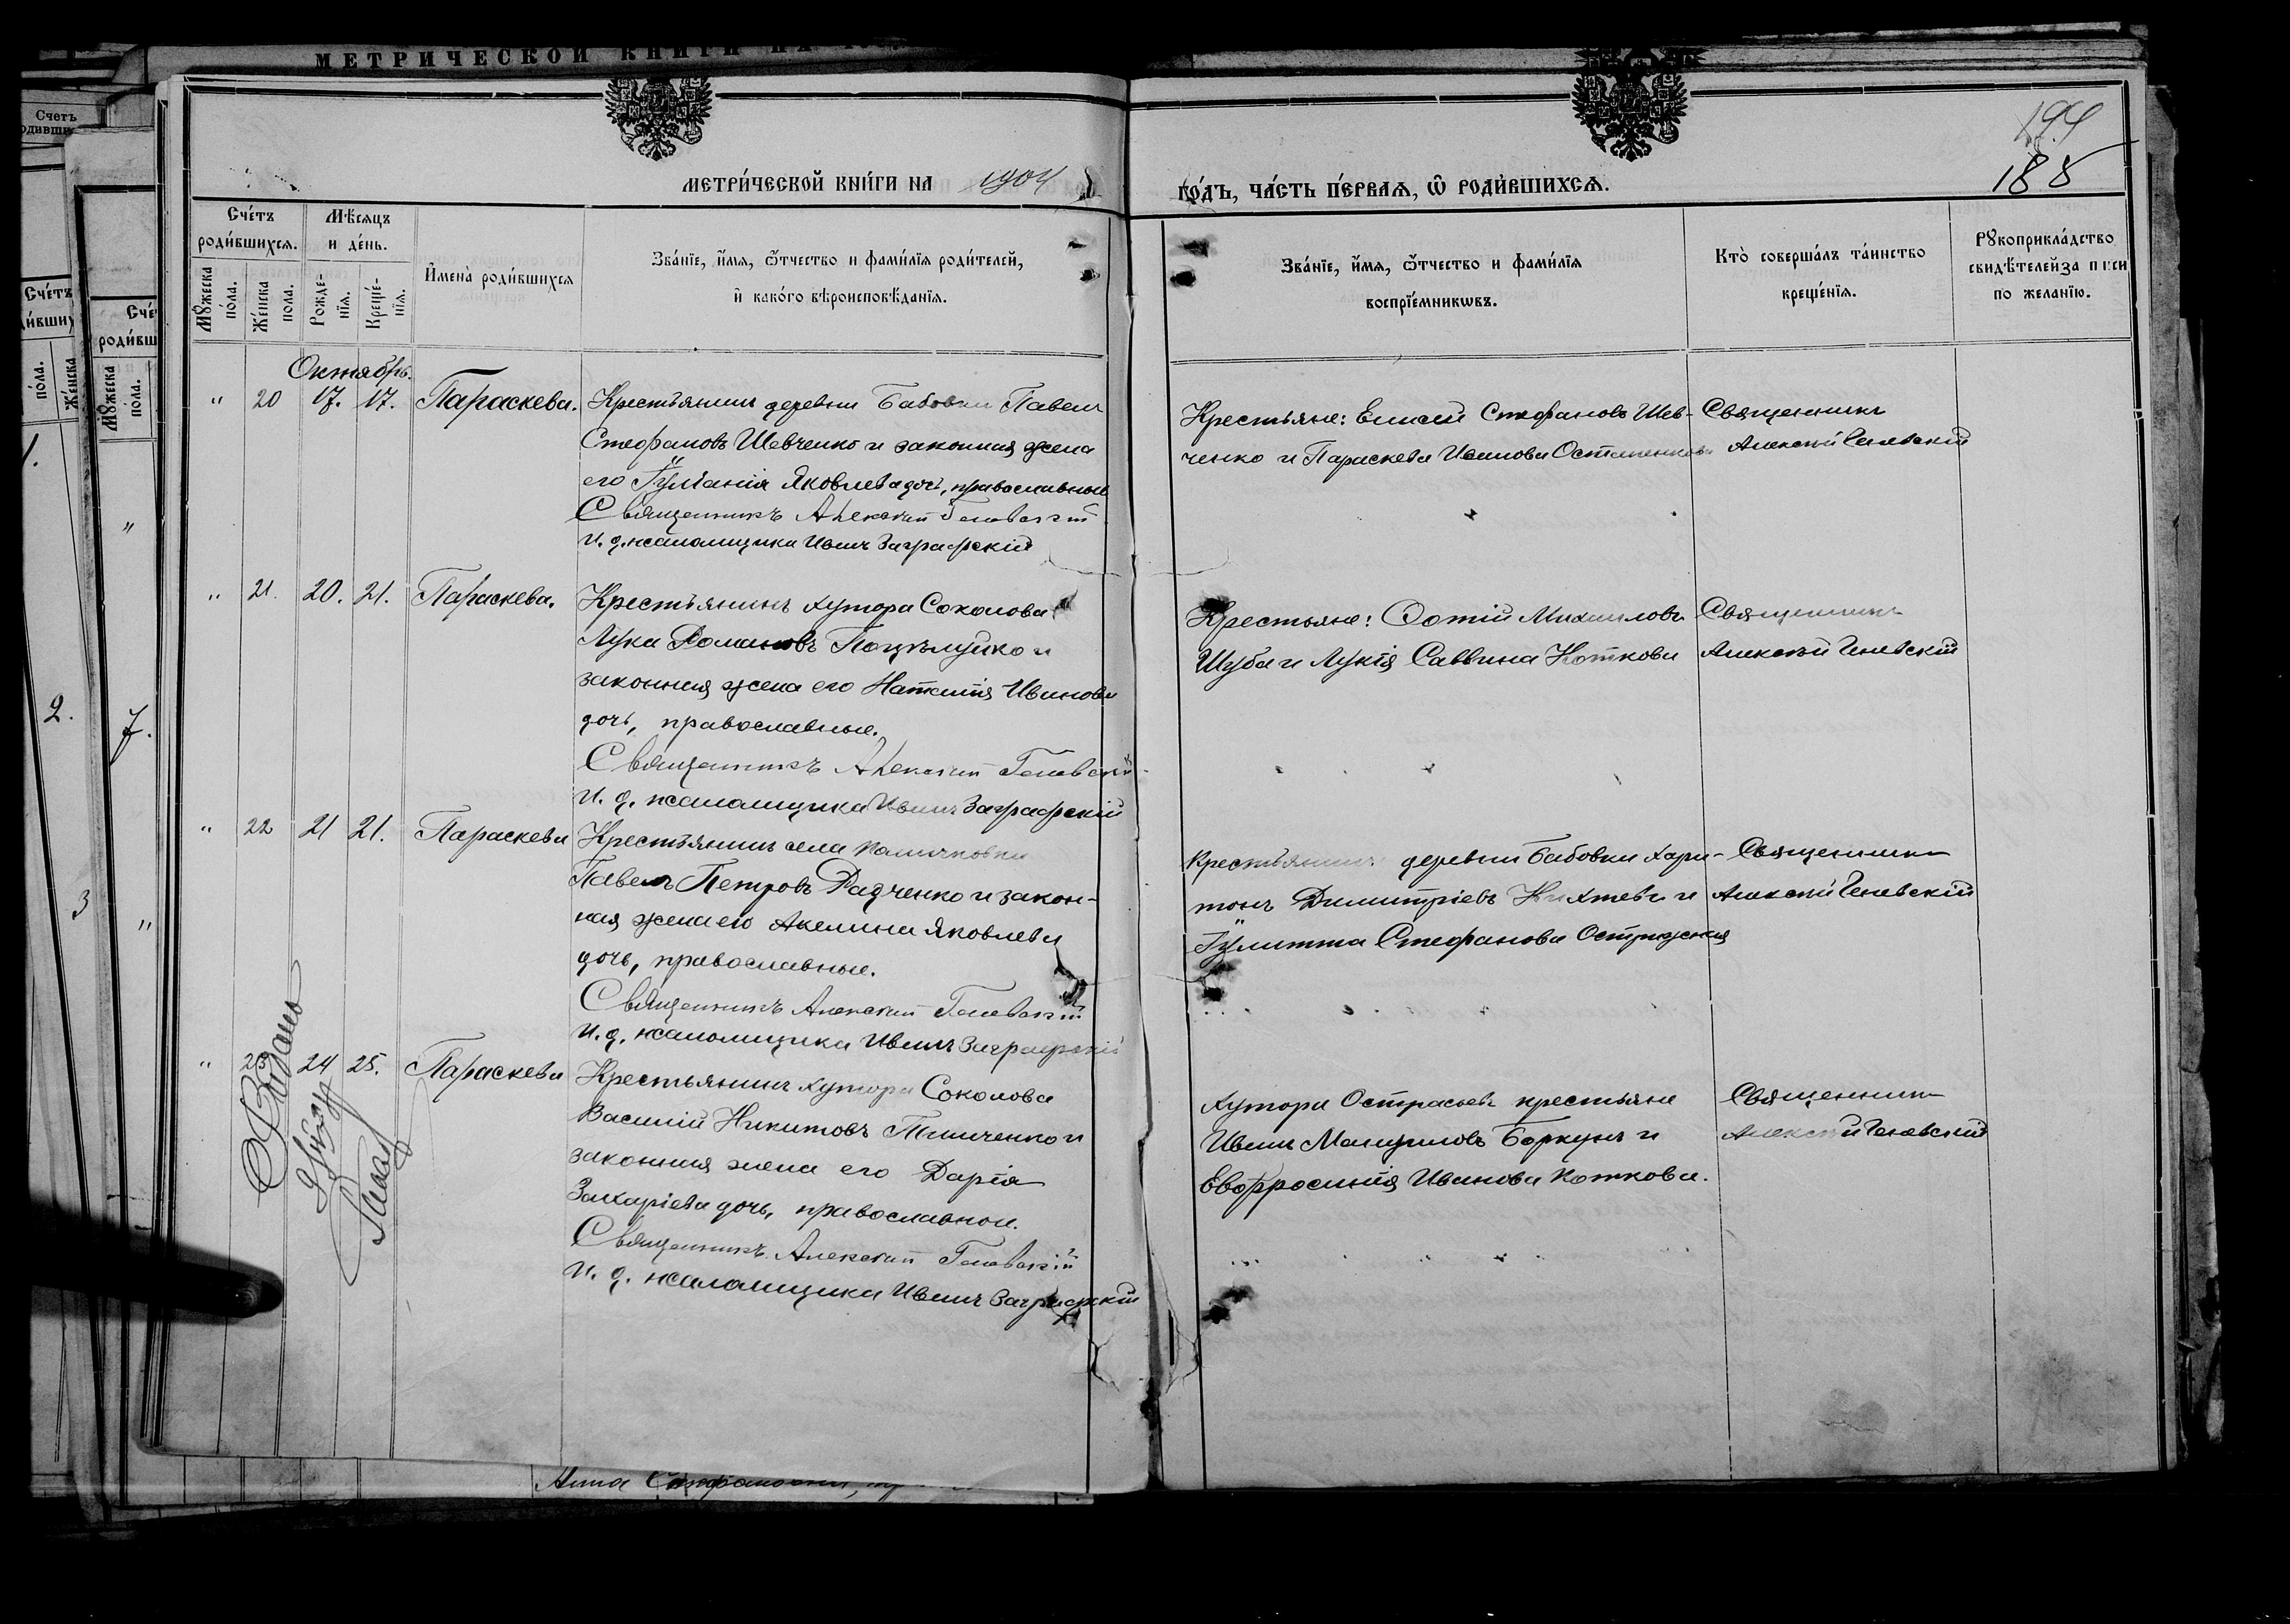 МЕТРИЧЕСКОЙ КНИГИ НА
194
188
МЕТРИ́ЧЕСКОЙ КНИ́ГИ НА 1904
ГО́ДЪ, ЧА́СТЬ ПЕ́РВАЯ, Ѡ РОДИ́ВШИХСЯ.
Сче́тъ родившихся.
Мѣ́сяцъ и де́нь.
Мꙋжеска по́ла.
Же́нска пола.
Рожде-нїя.
Креще́-нїя.
И҆мена̀ роди́вшихся
Зва́нїе, и҆́мя, ѻ҆́тчество и фами́лїя роди́телей,
и҆ како́го вѣроисповѣ́данїя.
Зва́нїе, и҆́мя, ѻ҆́тчество и фами́лїя
воспрїе́мникѡвъ.
Кто̀ соверша́лъ та́инство
креще́нїя.
Рꙋкоприкла́дство
свидѣ́телей за писи
по жела́нїю.
Октябрь.
" 20 17. 17. Параскева.
Крестьянинъ деревни Бабовки Павелъ
Стефановъ Шевченко и законная жена
его Іуліанія Яковлева дочь, православные
Священникъ Алексій Геневскій
И. д. псаломщика Иванъ Заграфскій
Крестьяне: Елисей Стефановъ Шев-
ченко и Параскева Иванова
Священникъ
Алексій Геневскій
" 21. 20. 21. Параскева.
Крестьянинъ хутора Соколова
Лука Романовъ Поцѣлуйко и
законная жена его Наталія Иванова
дочь, православные.
Священникъ Алексій Геневскій
И. д. псаломщика Иванъ Заграфскій
Крестьяне: Фотій Михаиловъ
Шуба и Лукія Саввина Коткова
Священникъ
Алексій Геневскій
" 22 21 21. Параскева
Крестьянинъ села
Павелъ Петровъ Радченко и закон-
ная жена его Акилина Яковлева
дочь, православные.
Священникъ Алексій Геневскій
И. д. псаломщика Иванъ Заграфскій
Крестьянинъ деревни Бабовки Хари-
тонъ Димитріевъ и
Іулитта Стефанова
Священникъ
Алексій Геневскій
" 23 24 25. Параскева
Крестьянинъ хутора Соколова
Василій Никитовъ и
законная жена его Дарія
Захаріева дочь, православные.
Священникъ Алексій Геневскій
И. д. псаломщика Иванъ Заграфскій
Хутора крестьяне
Иванъ Боркунъ и
Евфросинія Иванова Коткова.
Священникъ
Алексій Геневскій
2.
7.
3
Анна